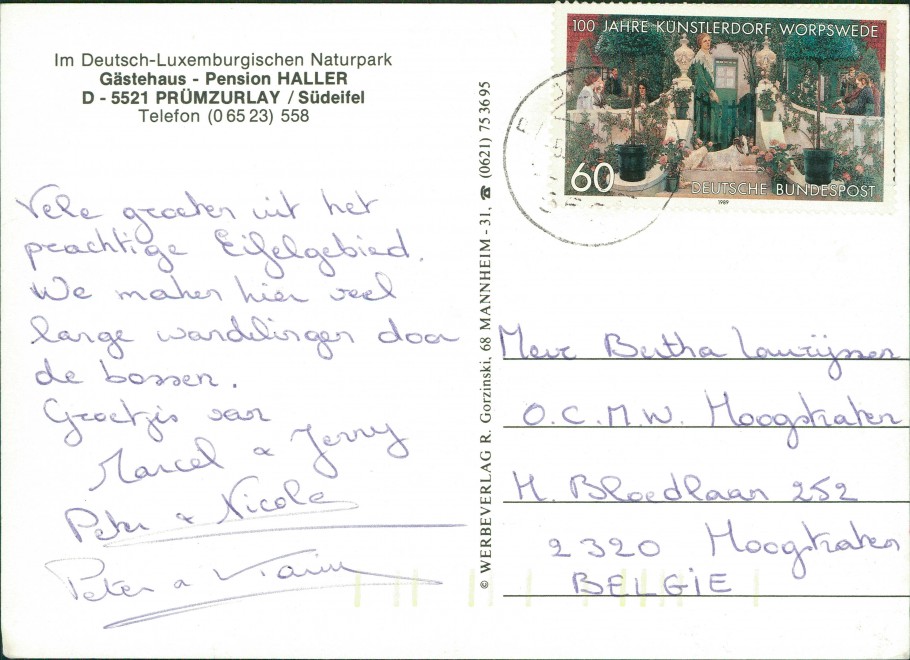 Im Deutsch-Luxemburgischen Naturpark
Gästehaus - Pension HALLER
D - 5521 PRÜMZURLAY / Südeifel
Telefon (0 65 23) 558
Vele groeten uit het
prachtige Eifelgebied.
We maken hier veel
lange wandelingen door
de bossen.
Groetjes van
Marcel & Jenny
Peter & Nicole
Peter &
© WERBEVERLAG R. Gorzinski, 68 MANNHEIM - 31, ☎ (0621) 75 36 95
100 JAHRE KÜNSTLERDORF WORPSWEDE
60
DEUTSCHE BUNDESPOST
1989
Mevr Bertha Laurijssen
O.C.M.W. Hoogstraten
H. Bloedlaan 252
2320 Hoogstraten
BELGIE